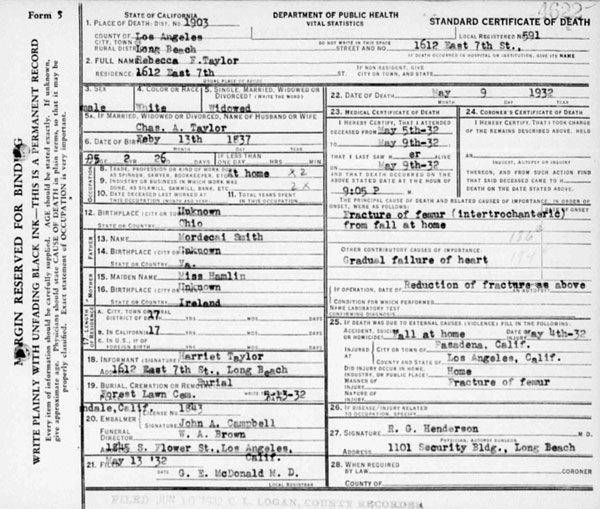 Form 5
STATE OF CALIFORNIA
DEPARTMENT OF PUBLIC HEALTH
VITAL STATISTICS
STANDARD CERTIFICATE OF DEATH
1. PLACE OF DEATH: DIST. NO. 1903
LOCAL REGISTERED NO. 591
COUNTY OF Los Angeles
CITY, TOWN OR RURAL DISTRICT Long Beach
DO NOT WRITE IN THIS SPACE
STREET AND NO. 1612 East 7th St.,
IF DEATH OCCURRED IN HOSPITAL OR INSTITUTION, GIVE ITS NAME
2. FULL NAME Rebecca F. Taylor
RESIDENCE 1612 East 7th
USUAL PLACE OF ABODE
IF NON RESIDENT, GIVE
ST. CITY OR TOWN, AND STATE
3. SEX
4. COLOR OR RACE
5. SINGLE, MARRIED, WIDOWED OR DIVORCED? (WRITE THE WORD)
male White Widowed
5A. IF MARRIED, WIDOWED OR DIVORCED, NAME OF HUSBAND OR WIFE
Chas. A. Taylor
6. DATE OF BIRTH Feby 13th 1837
MONTH DAY YEAR
7. AGE 95 2 26 DAYS
IF LESS THAN ONE DAY HRS. MIN.
OCCUPATION
8. TRADE, PROFESSION OR KIND OF WORK DONE, AS SPINNER, SAWYER, BOOKKEEPER, ETC. At home
9. INDUSTRY OR BUSINESS IN WHICH WORK WAS DONE, AS SILKMILL, SAWMILL, BANK, ETC.
10. DATE DECEASED LAST WORKED AT THIS OCCUPATION (MONTH AND YEAR)
11. TOTAL YEARS SPENT IN THIS OCCUPATION
12. BIRTHPLACE (CITY OR TOWN) Unknown
STATE OR COUNTRY Ohio
FATHER
13. NAME Mordecai Smith
14. BIRTHPLACE (CITY OR TOWN) Unknown
STATE OR COUNTRY Va.
MOTHER
15. MAIDEN NAME Miss Hamlin
16. BIRTHPLACE (CITY OR TOWN) Unknown
STATE OR COUNTRY Ireland
17. LENGTH OF RESIDENCE
A. CITY, TOWN OR RURAL DISTRICT OF DEATH 27
B. IN CALIFORNIA 17
C. IN U.S., IF OF FOREIGN BIRTH
18. INFORMANT (SIGNATURE) Harriet Taylor
ADDRESS 1612 East 7th St., Long Beach
19. BURIAL, CREMATION OR REMOVAL? Burial
Forest Lawn Cem.
ndale, Calif.
20. EMBALMER LICENSE NO. 1843
SIGNATURE John A. Campbell
FUNERAL DIRECTOR W. A. Brown
1845 S. Flower St., Los Angeles, Calif.
21. FILED May 13 '32
DATE
G. E. McDonald M. D.
LOCAL REGISTRAR
22. DATE OF DEATH May 9 1932
MONTH DAY YEAR
23. MEDICAL CERTIFICATE OF DEATH
I HEREBY CERTIFY, THAT I ATTENDED DECEASED FROM May 5th-32
TO May 9th-32
THAT I LAST SAW H er ALIVE
ON May 9th-32
AND THAT DEATH OCCURRED ON THE ABOVE STATED DATE AT THE HOUR OF 9:05 P M.
24. CORONER'S CERTIFICATE OF DEATH
I HEREBY CERTIFY, THAT I TOOK CHARGE OF THE REMAINS DESCRIBED ABOVE, HELD AN
INQUEST, AUTOPSY OR INQUIRY
THEREON, AND FROM SUCH ACTION FIND THAT SAID DECEASED CAME TO H DEATH ON THE DATE STATED ABOVE.
THE PRINCIPAL CAUSE OF DEATH AND RELATED CAUSES OF IMPORTANCE, IN ORDER OF ONSET, WERE AS FOLLOWS:
Fracture of femur (intertrochanteric)
from fall at home
OTHER CONTRIBUTORY CAUSES OF IMPORTANCE:
Gradual failure of heart
IF OPERATION, DATE OF Reduction of fracture as above
CONDITION FOR WHICH PERFORMED
NAME LABORATORY TEST CONFIRMING DIAGNOSIS
25. IF DEATH WAS DUE TO EXTERNAL CAUSES (VIOLENCE) FILL IN THE FOLLOWING:
ACCIDENT, SUICIDE OR HOMICIDE? Fall at home DATE May 4th-32
INJURED AT CITY OR TOWN OF Pasadena, Calif.
COUNTY AND STATE OF Los Angeles, Calif.
DID INJURY OCCUR IN HOME, INDUSTRY, OR PUBLIC PLACE? Home
MANNER OF INJURY Fracture of femur
NATURE OF INJURY
26. IF DISEASE/INJURY RELATED TO OCCUPATION, SPECIFY
27. SIGNATURE R. G. Henderson M.D.
PHYSICIAN, AUTOPSY SURGEON
ADDRESS 1101 Security Bldg., Long Beach
28. WHEN REQUIRED BY LAW CORONER
COUNTY OF
C. L. LOGAN, COUNTY RECORDER
MARGIN RESERVED FOR BINDING
WRITE PLAINLY WITH UNFADING BLACK INK—THIS IS A PERMANENT RECORD
Every item of information should be carefully supplied. AGE should be stated exactly. If unknown, give approximate age. Physicians should state CAUSE OF DEATH in plain terms, so that it may be properly classified. Exact statement of OCCUPATION is very important.